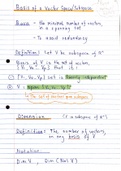 Basis of a Vector Space/Subspace
Basis = the minimal number of vectors
in a spanning set
- To avoid redundancy
Definition: Let V be subspace of ℝⁿ
Basis of V is the set of vectors
{V₁, V₂, … Vₖ} that :
① {V₁, V₂, … Vₖ} set is linearly independent
② V = span {V₁, V₂, … Vₖ}
The set of vectors span subspace
Dimension (of a subspace of ℝⁿ)
Definition: The number of vectors
in any basis of V
Notation
Dim V , Dim (